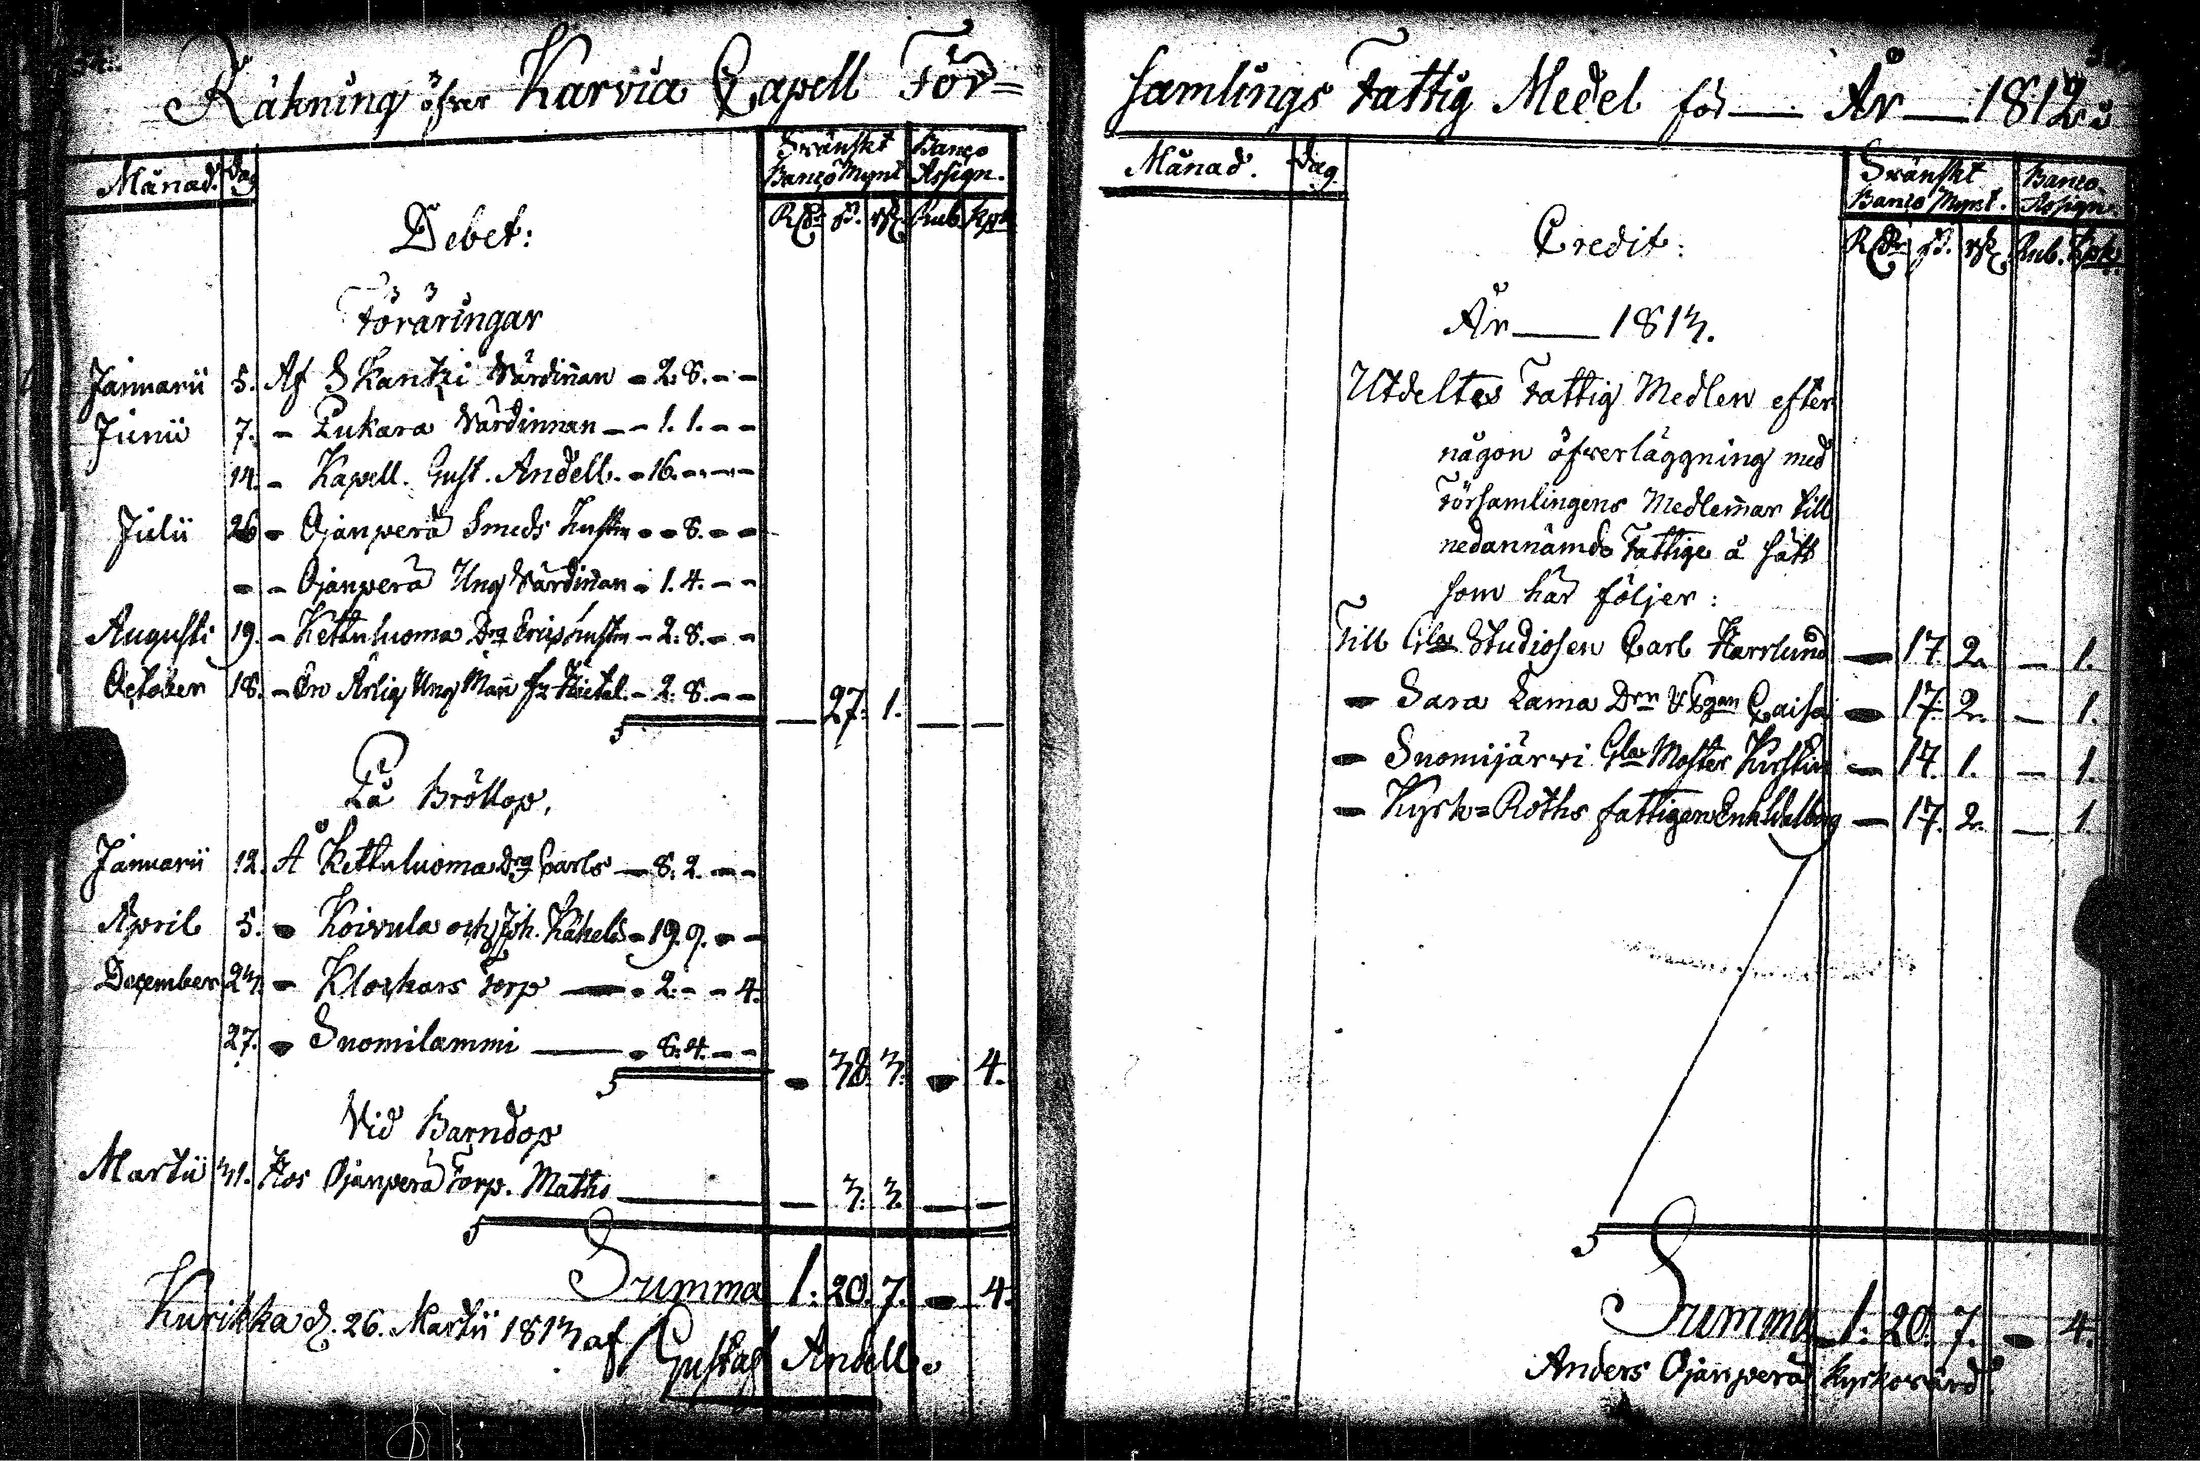 Räkning öfver Karvia Capell För=
Månad. Dag Svänskt Banco Mynt Banco Assign.
Rdr ß. rst. Rub. Kpk
Debet:
Föräringar
Januarii 5. Af Skantzi Värdinnan - 2. 8. - -
Junii 7. - Pukara Värdinnan - - 1. 1. - -
14. - Kapell. Gust. Andell. - 16. - - -
Julii 26 - Ojanperä Smeds Hustru - - 8. - -
- - Ojanperä Ung Värdinnan - 1. 4. - -
Augusti 19. - Kettuluoma Drg Erics hustru - 2. 8. - -
October 18. - En Ärlig Ung Man - 2. 8. - - — 27. 1. — —
På Bröllop,
Januarii 12. Å Kettuluoma Drg Carls — 8. 2. - -
April 5. - Koivula och Joh. Käkelä - 19. 9. - -
December 23. - Klockars Torp — - 2. - - 4.
27. - Suomilammi — - 8. 4. - - - 38. 3. - 4.
Vid Barndop
Martii 31. Hos Ojanperä Torp. Matts — — 3. 3. — —
Summa 1. 20. 7. - 4.
Kurikka d. 26. Martii 1813 af Gustaf Andell.
samlings Fattig Medel för — År — 1812.
Månad. Dag. Svänskt Banco Mynt. Banco Assign.
Rdr ß. rst. Rub. Kpk.
Credit:
År — 1813.
Utdeltes Fattig Medlen efter
någon öfverläggning med
Församlingens Medlemar till
nedannämde Fattige å sätt
som här följer:
Till Gla Studiosen Carl Harrlund — 17. 2. — 1.
- Sara Lama Caisa — 17. 2. — 1.
- Suomijärvi Gla Moster Kirstin — 17. 1. — 1.
- Kyrk=Roths fattigen Enk Walborg — 17. 2. — 1.
Summa 1. 20. 7. - 4.
Anders Ojanperä Kyrkovärd